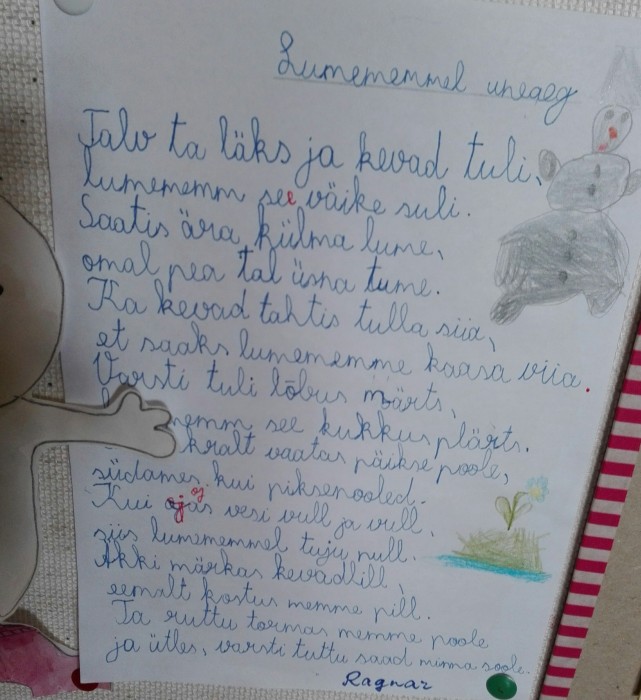 Lumememmel uneaeg
Talv ta läks ja kevad tuli,
lumememm see väike suli.
Saatis ära külma lume,
omal pea tal üsna tume.
Ka kevad tahtis tulla siia,
et saaks lumememme kaasa viia.
Varsti tuli lõbus märts,
memm see kukkus plärts.
kralt vaatas päikse poole,
südames kui piksenooled.
Kui ojas vesi vull ja vull,
siis lumememmel tuju null.
Äkki märkas kevadlill,
eemalt kostus memme pill.
Ta ruttu tormas memme poole
ja ütles, varsti tuttu saad minna soole.
Ragnar